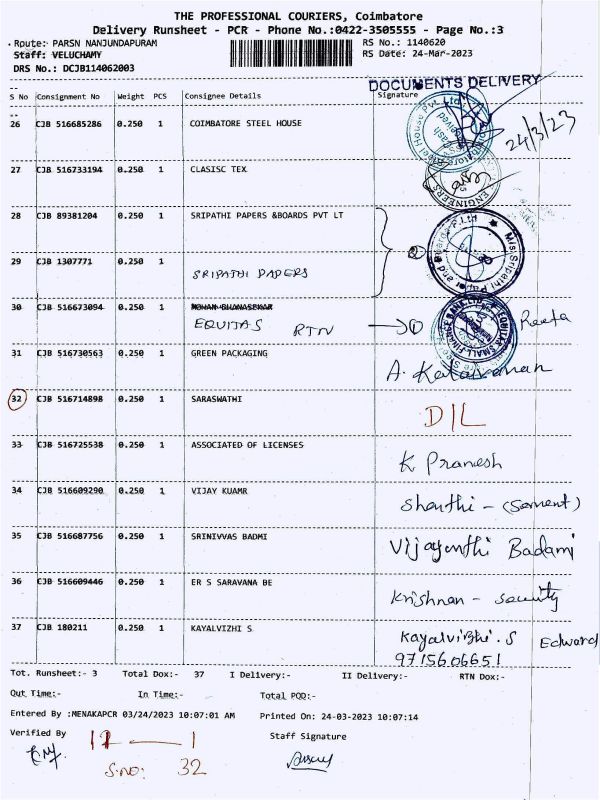 THE PROFESSIONAL COURIERS, Coimbatore
Delivery Runsheet - PCR - Phone No.:0422-3505555 - Page No.:3
Route: PARSN NANJUNDAPURAM RS No.: 1140620
Staff: VELUCHAMY RS Date: 24-Mar-2023
DRS No.: DCJB114062003
DOCUMENTS DELIVERY
S No Consignment No Weight PCS Consignee Details Signature
26 CJB 516685286 0.250 1 COIMBATORE STEEL HOUSE
24/3/23
27 CJB 516733194 0.250 1 CLASISC TEX
ENGINEERS
28 CJB 89381204 0.250 1 SRIPATHI PAPERS &BOARDS PVT LT
M/s Sripathi Paper and Boards P Ltd
29 CJB 1307771 0.250 1
SRIPATHI PAPERS
30 CJB 516673094 0.250 1
EQUITAS RTN Reeta
EQUITAS SMALL FINANCE BANK LTD
31 CJB 516730563 0.250 1 GREEN PACKAGING
32 CJB 516714898 0.250 1 SARASWATHI
D/L
33 CJB 516725538 0.250 1 ASSOCIATED OF LICENSES
K Pramesh
34 CJB 516609290 0.250 1 VIJAY KUAMR
Shanthi -
35 CJB 516687756 0.250 1 SRINIVVAS BADMI
Vijayenthi Badami
36 CJB 516609446 0.250 1 ER S SARAVANA BE
Krishnan - security
37 CJB 180211 0.250 1 KAYALVIZHI S
Kayalvizhi.S Edward
9715606651
Tot. Runsheet:- 3 Total Dox:- 37 I Delivery:- II Delivery:- RTN Dox:-
Out Time:- In Time:- Total POD:-
Entered By :MENAKAPCR 03/24/2023 10:07:01 AM Printed On: 24-03-2023 10:07:14
Verified By Staff Signature
S.no: 32